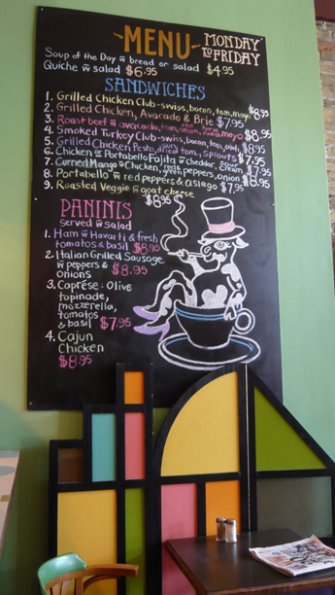 MENU
MONDAY
TO FRIDAY
Soup of the Day w bread or salad $4.95
Quiche w salad $6.95
SANDWICHES
1. Grilled Chicken Club-swiss, bacon, tom, mayo $8.95
2. Grilled Chicken, Avocado & Brie $7.95
3. Roast beef w avocado, tom, mayo $8.95
4. Smoked Turkey Club-swiss, bacon, tom, $8.95
5. Grilled Chicken Pesto, tom, sprouts $7.95
6. Chicken & Portabello Fajita w cheddar, sour cream $7.95
7. Curried Mango w Chicken, peppers, onion $7.95
8. Portabello w red peppers & asiago $7.95
9. Roasted Veggie w goat cheese
$8.95
PANINIS
served w salad
1. Ham w Havarti & fresh
tomatoes & basil $8.95
2. Italian Grilled Sausage
w peppers &
onions $8.95
3. Caprese - Olive
tapinade,
mozzerella,
tomatoes
& basil $7.95
4. Cajun
Chicken
$8.95